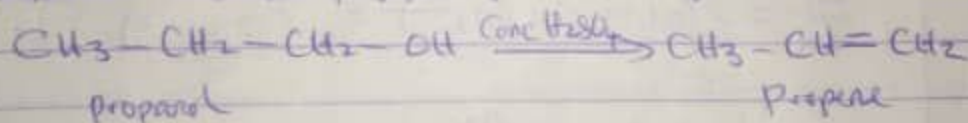 CH3 — CH2 — CH2 — OH Conc H2SO4 → CH3 - CH = CH2
propanol Propene